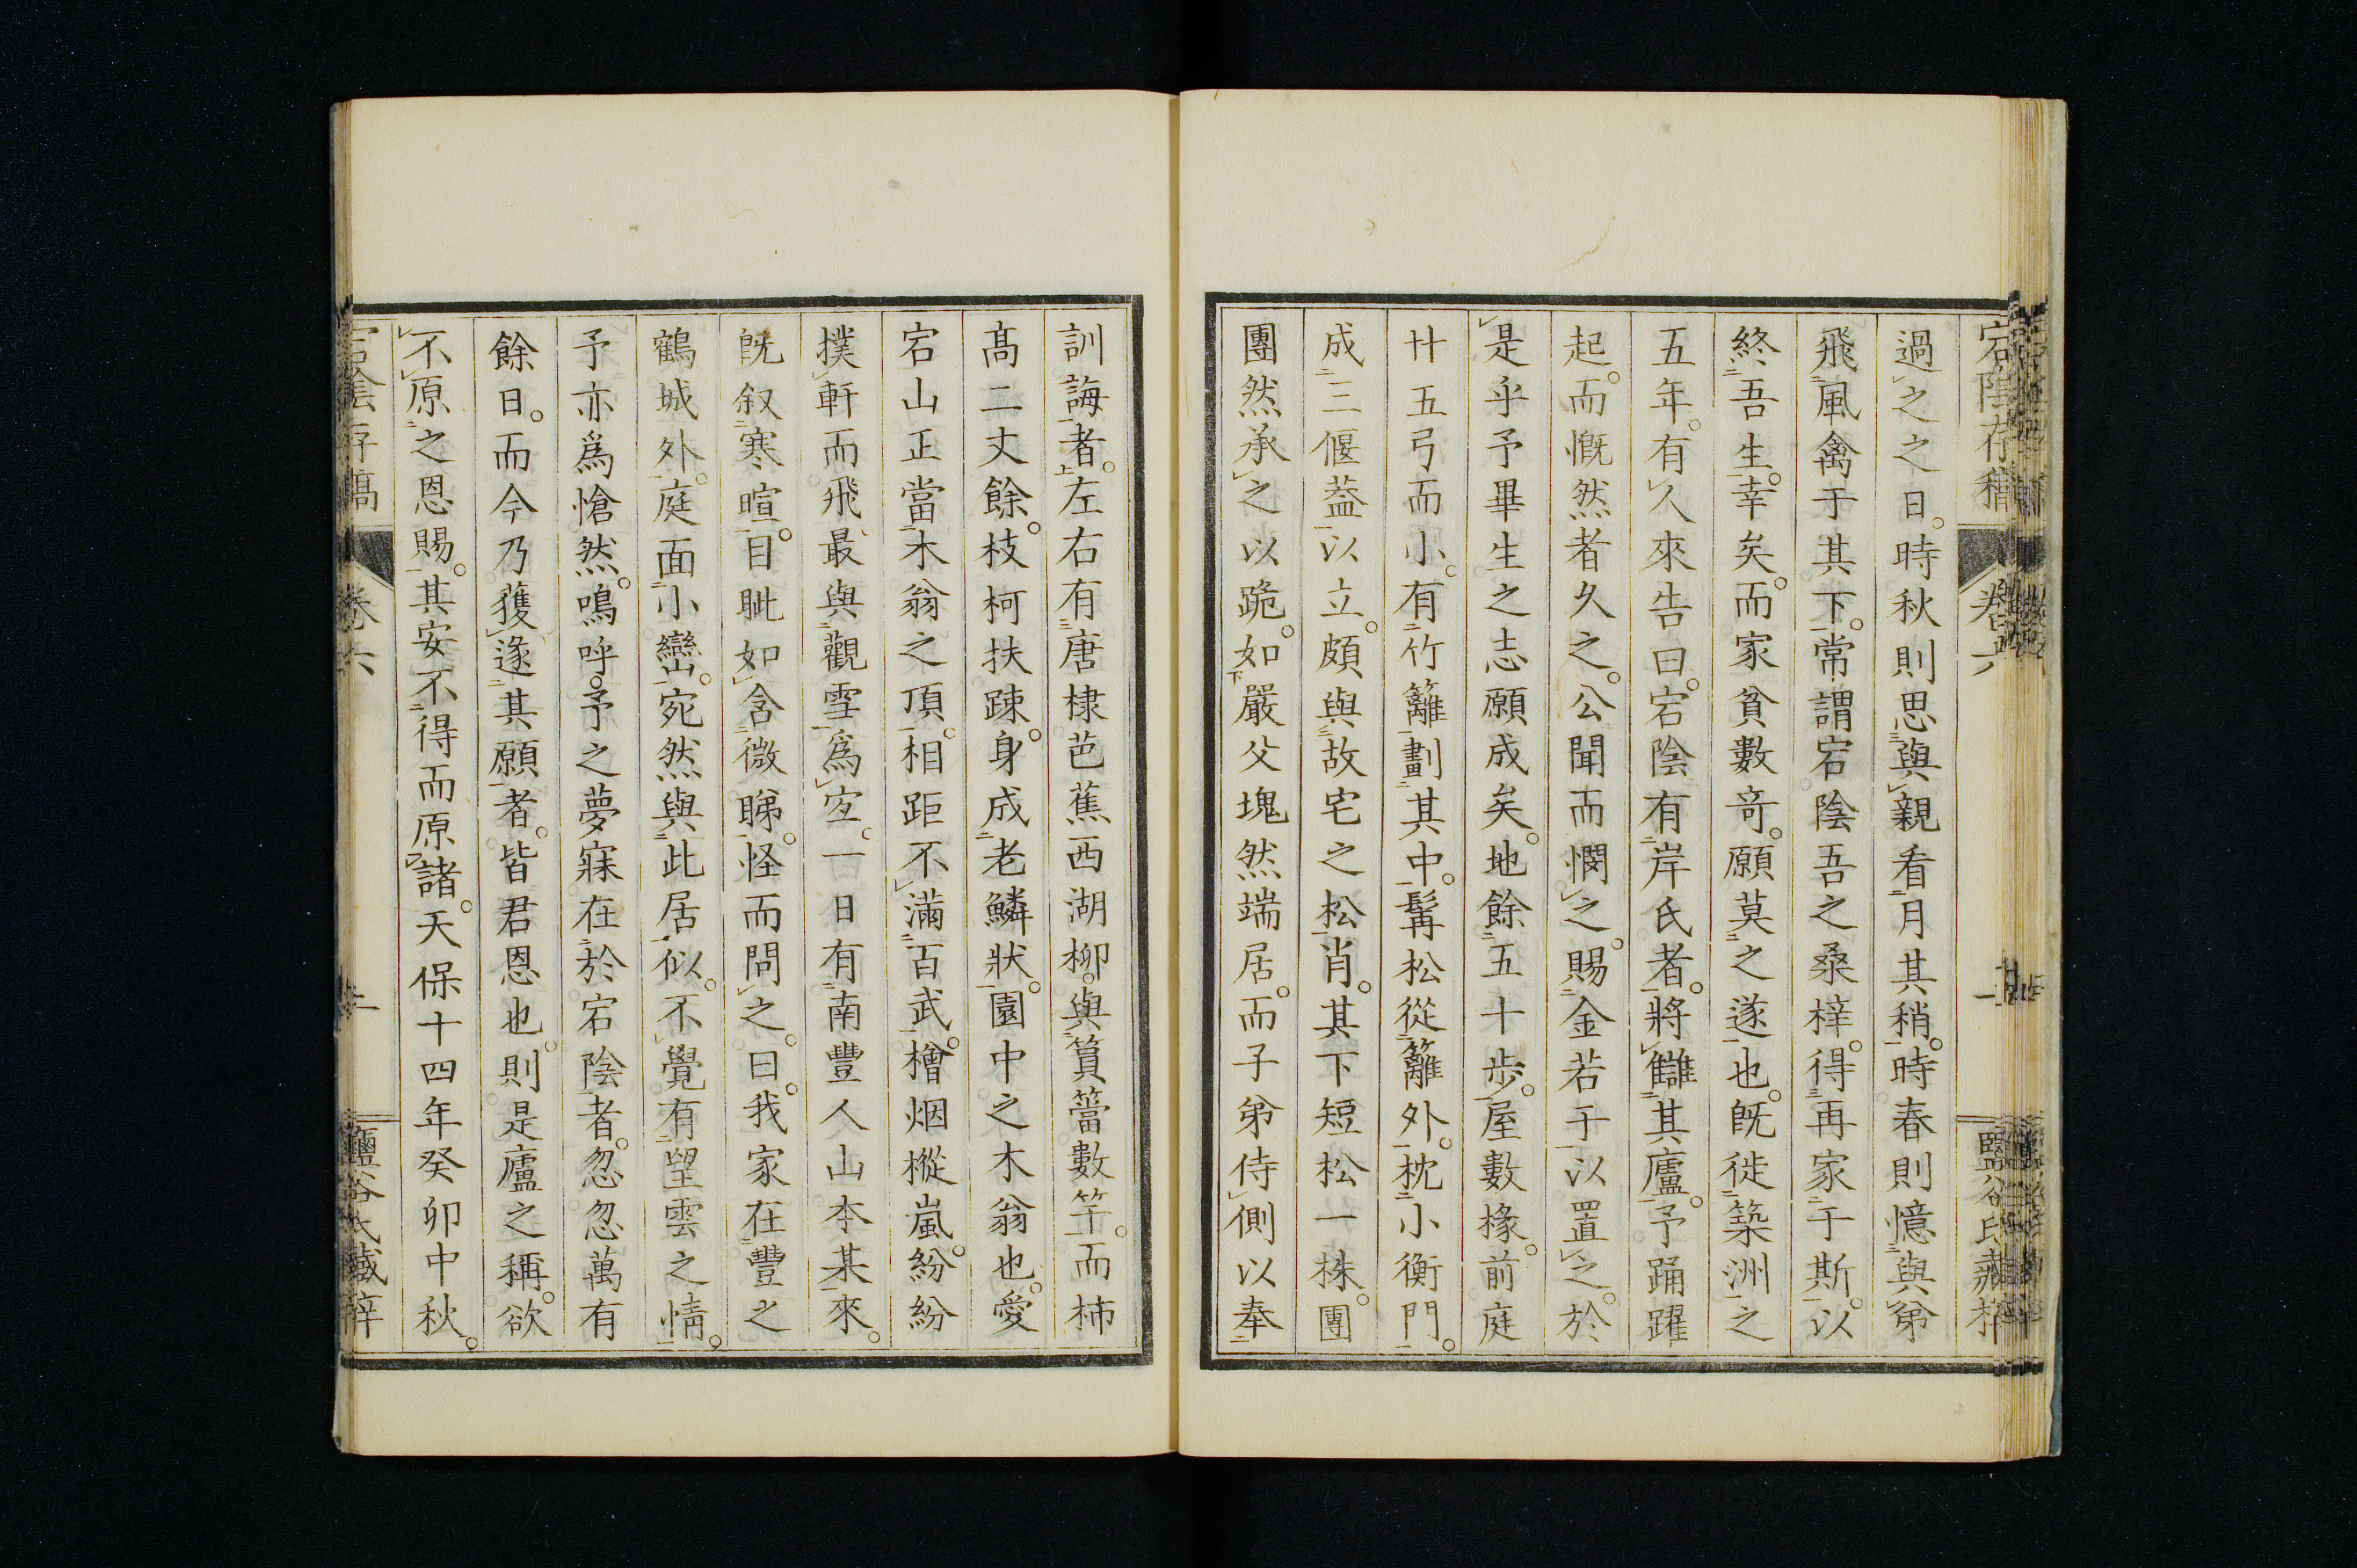 宕陰存稿 卷六 鹽谷氏藏梓
過之之日。時秋則思與親看月其稍。時春則憶與弟
飛風禽于其下。常謂宕陰吾之桑梓。得再家于斯。以
終吾生。幸矣。而家貧數奇。願莫之遂也。既徙築洲之
五年。有人來告曰。宕陰有岸氏者。將讎其廬。予踊躍
起。而慨然者久之。公聞而憫之。賜金若干以置之。於
是乎予畢生之志願成矣。地餘五十歩。屋數椽。前庭
廿五弓而小。有竹籬劃其中。髯松從籬外。枕小衡門。
成三偃葢以立。頗與故宅之松肖。其下短松一株。團
團然承之以跪。如嚴父塊然端居。而子弟侍側以奉
訓誨者。左右有唐棣芭蕉西湖柳。與篔簹數竿。而柿
髙二丈餘。枝柯扶踈。身成老鱗狀。園中之木翁也。愛
宕山正當木翁之頂。相距不滿百武。檜烟樅嵐。紛紛
撲軒而飛。最與觀雪爲宐。一日有南豐人山本某來。
既叙寒暄。目眦如含微睇。怪而問之。曰。我家在豐之
鶴城外。庭面小巒。宛然與此居似。不覺有望雲之情。
予亦爲愴然。嗚呼。予之夢寐在於宕陰者。忽忽萬有
餘日。而今乃獲遂其願者。皆君恩也。則是廬之稱。欲
不原之恩賜。其安不得而原諸。天保十四年癸卯中秋。
宕陰存稿 卷六 鹽谷氏藏梓